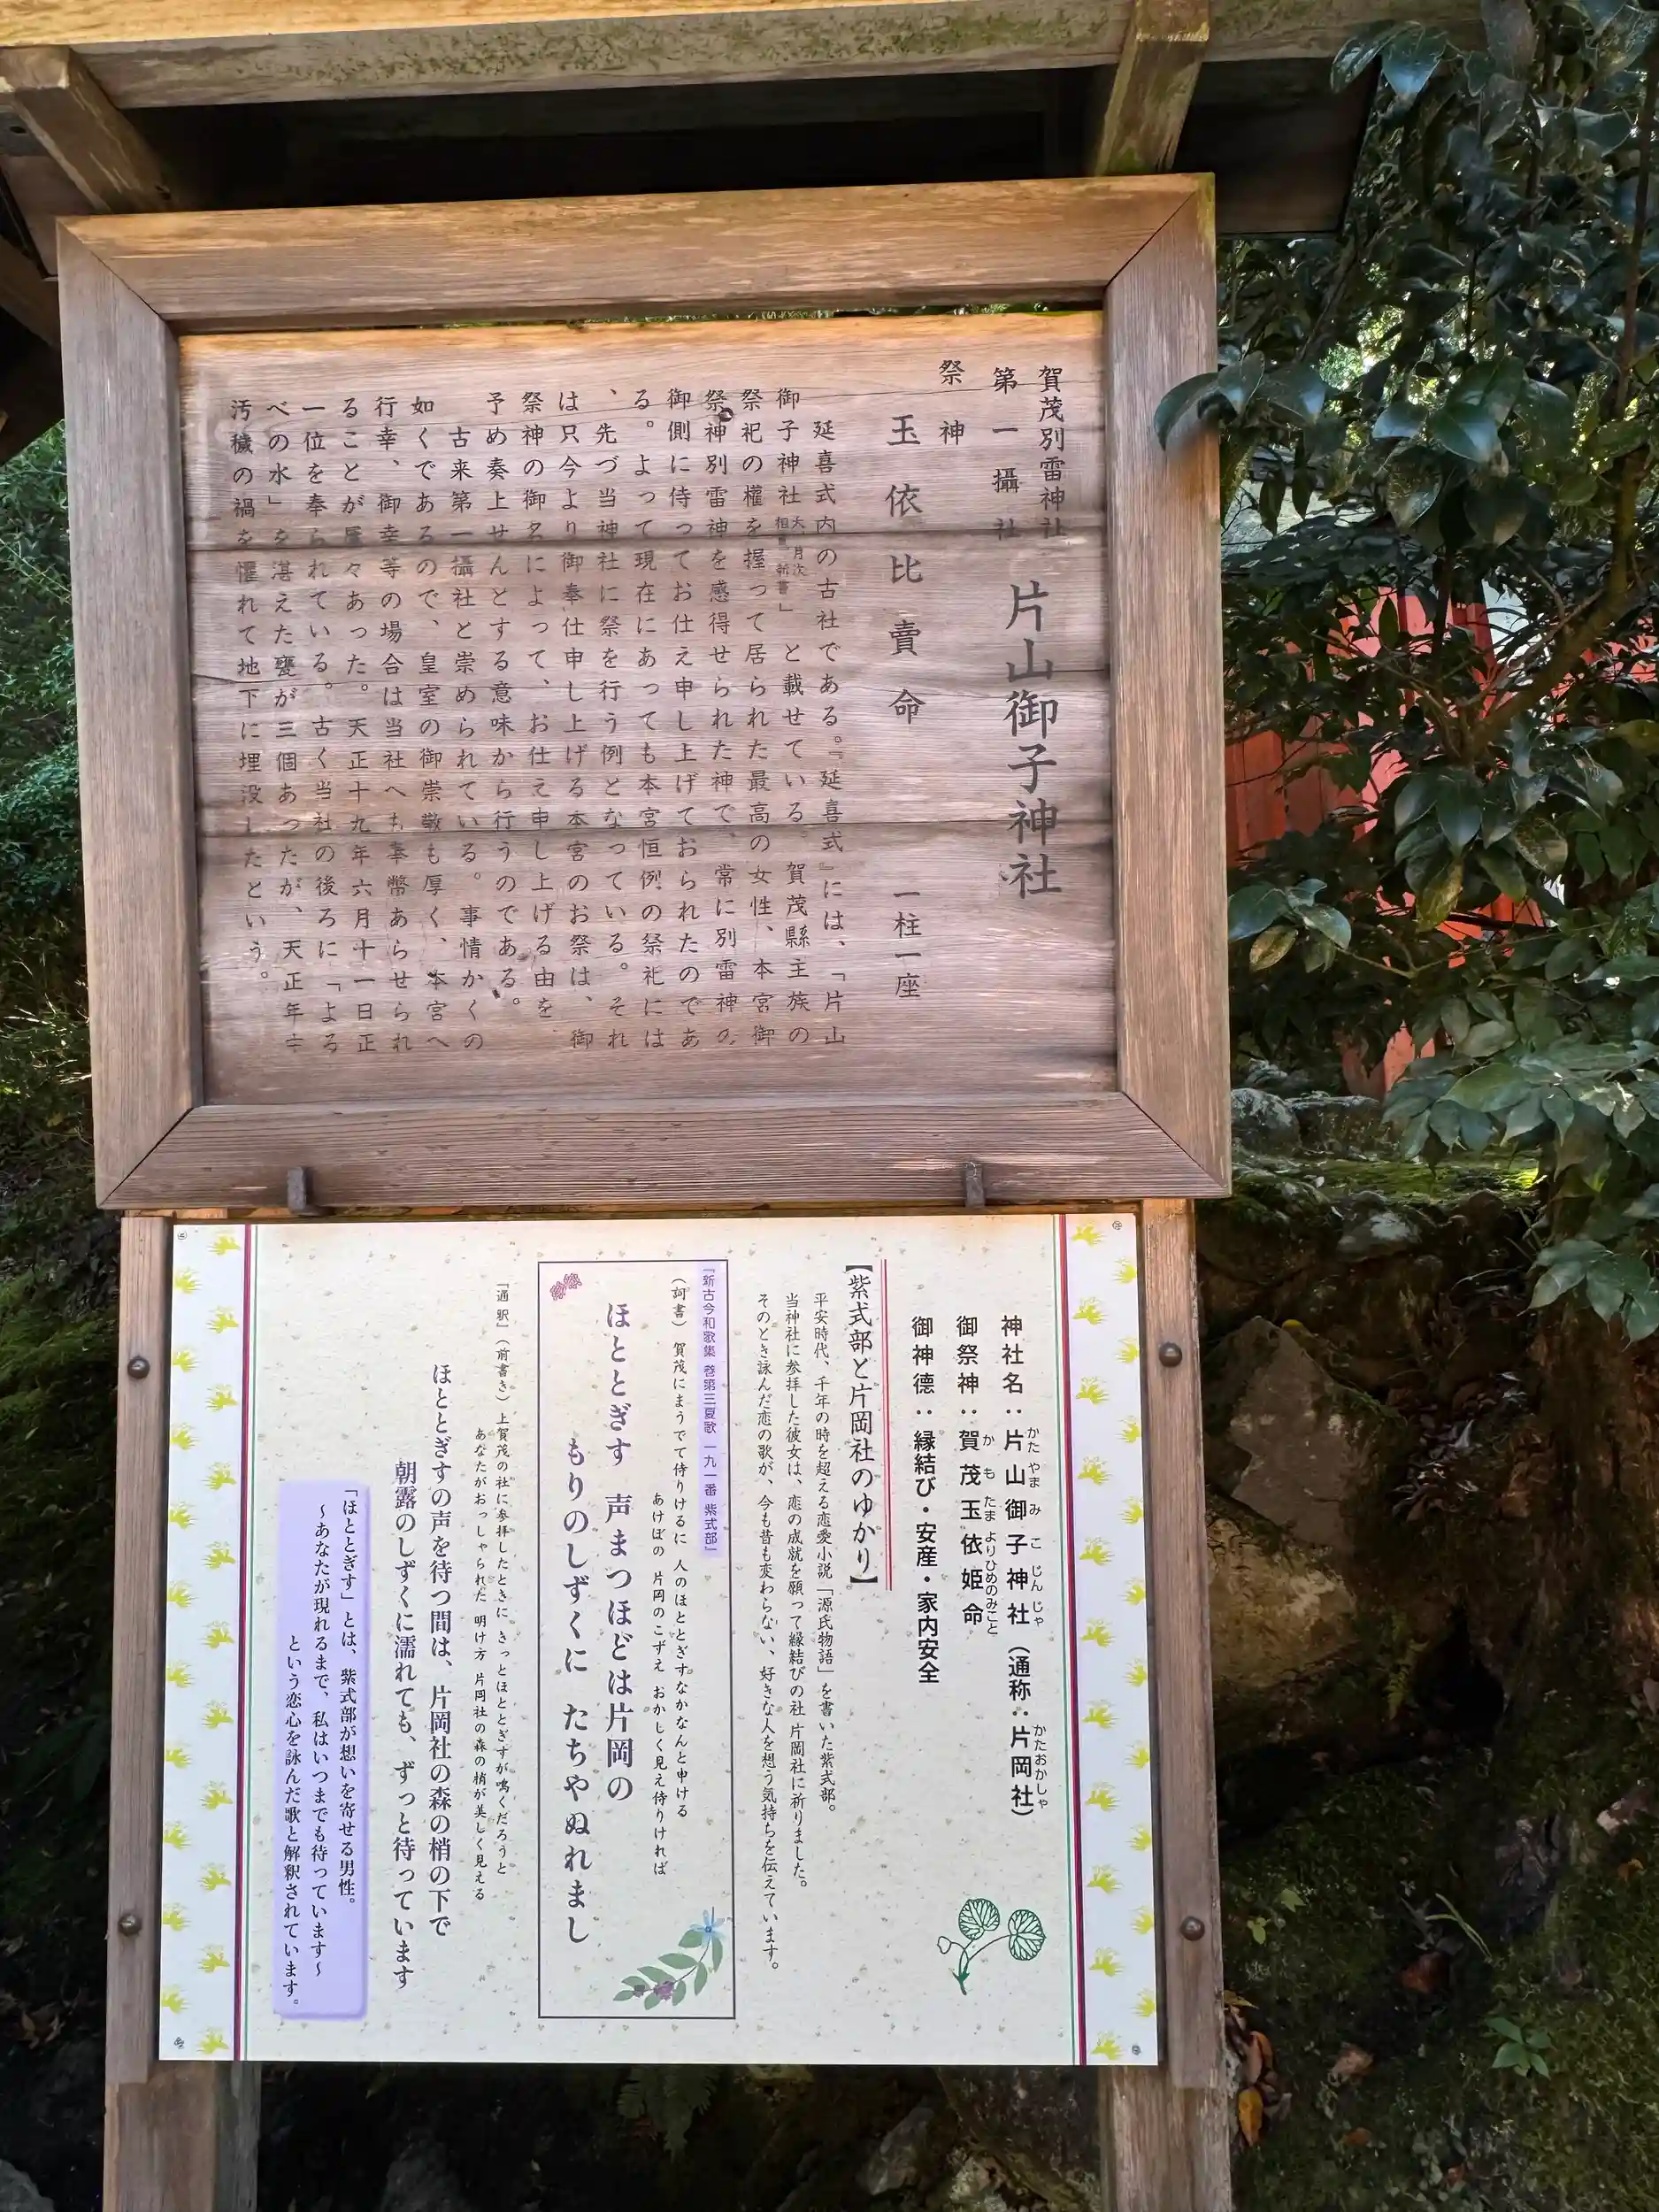 賀茂別雷神社
第一攝社
片山御子神社
祭神
玉依比賣命 一柱一座
延喜式内の古社である。『延喜式』には、「片山
御子神社 大、月次 相嘗、新嘗」と載せている。賀茂縣主族の
祭祀の權を握って居られた最高の女性、本宮御
祭神別雷神を感得せられた神で、常に別雷神の
御側に侍ってお仕え申し上げておられたのであ
る。よって現在にあっても本宮恒例の祭祀には
、先づ当神社に祭を行う例となっている。それ
は只今より御奉仕申し上げる本宮のお祭は、御
祭神の御名によって、お仕え申し上げる由を
予め奏上せんとする意味から行うのである。
古来第一攝社と崇められている。事情かくの
如くであるので、皇室の御崇敬も厚く、本宮へ
行幸、御幸等の場合は当社へも奉幣あらせられ
ることが屢々あった。天正十九年六月十一日正
一位を奉られている。古く当社の後ろに「よる
べの水」を湛えた甕が三個あったが、天正年中
汚穢の禍を懼れて地下に埋没したという。
神社名：片山御子神社（通称：片岡社）
かた やま み こ じん じゃ かたおかしゃ
御祭神：賀茂玉依姫命
か も たま よりひめのみこと
御神徳：縁結び・安産・家内安全
【紫式部と片岡社のゆかり】
平安時代、千年の時を超える恋愛小説「源氏物語」を書いた紫式部。
当神社に参拝した彼女は、恋の成就を願って縁結びの社 片岡社に祈りました。
そのとき詠んだ恋の歌が、今も昔も変わらない、好きな人を想う気持ちを伝えています。
「新古今和歌集 巻第三夏歌 一九一番 紫式部」
（詞書） 賀茂にまうでて侍りけるに 人のほととぎすなかなんと申ける
あけぼの 片岡のこずえ おかしく見え侍りければ
ほととぎす 声まつほどは片岡の
もりのしずくに たちやぬれまし
「通釈」（前書き） 上賀茂の社に参拝したときに きっとほととぎすが鳴くだろうと
あなたがおっしゃられた 明け方 片岡社の森の梢が美しく見える
ほととぎすの声を待つ間は、片岡社の森の梢の下で
朝露のしずくに濡れても、ずっと待っています
「ほととぎす」とは、紫式部が想いを寄せる男性。
～あなたが現れるまで、私はいつまでも待っています～
という恋心を詠んだ歌と解釈されています。